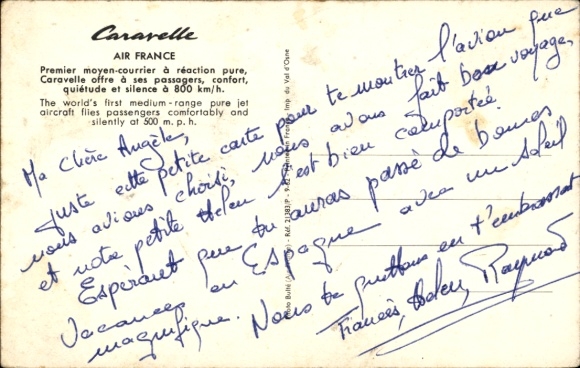 Caravelle
AIR FRANCE
Premier moyen-courrier à réaction pure,
Caravelle offre à ses passagers, confort,
quiétude et silence à 800 km/h.
The world's first medium-range pure jet
aircraft flies passengers comfortably and
silently at 500 m.p.h.
Ma Chère Angèle,
juste cette petite carte pour te montrer l'avion que
nous avions choisi, nous avons fait bon voyage,
et notre petite Helen s'est bien comportée.
Espérant que tu auras passé de bonnes
Vacances en Espagne avec un soleil
magnifique. Nous te quittons en t'embrassant
Francès, Helen, Raymond
Photo Bulté - Réf. 21383/P - 9-62 - Printed in France Imp. du Val d'Osne